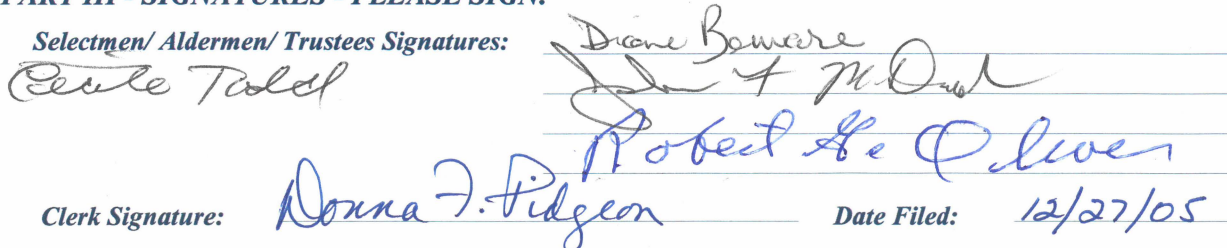 PART III - SIGNATURES - PLEASE SIGN:
Selectmen/ Aldermen/ Trustees Signatures: Diane
Cecile Todd John F
Robert H. Oliver
Clerk Signature: Donna F. Pidgeon Date Filed: 12/27/05